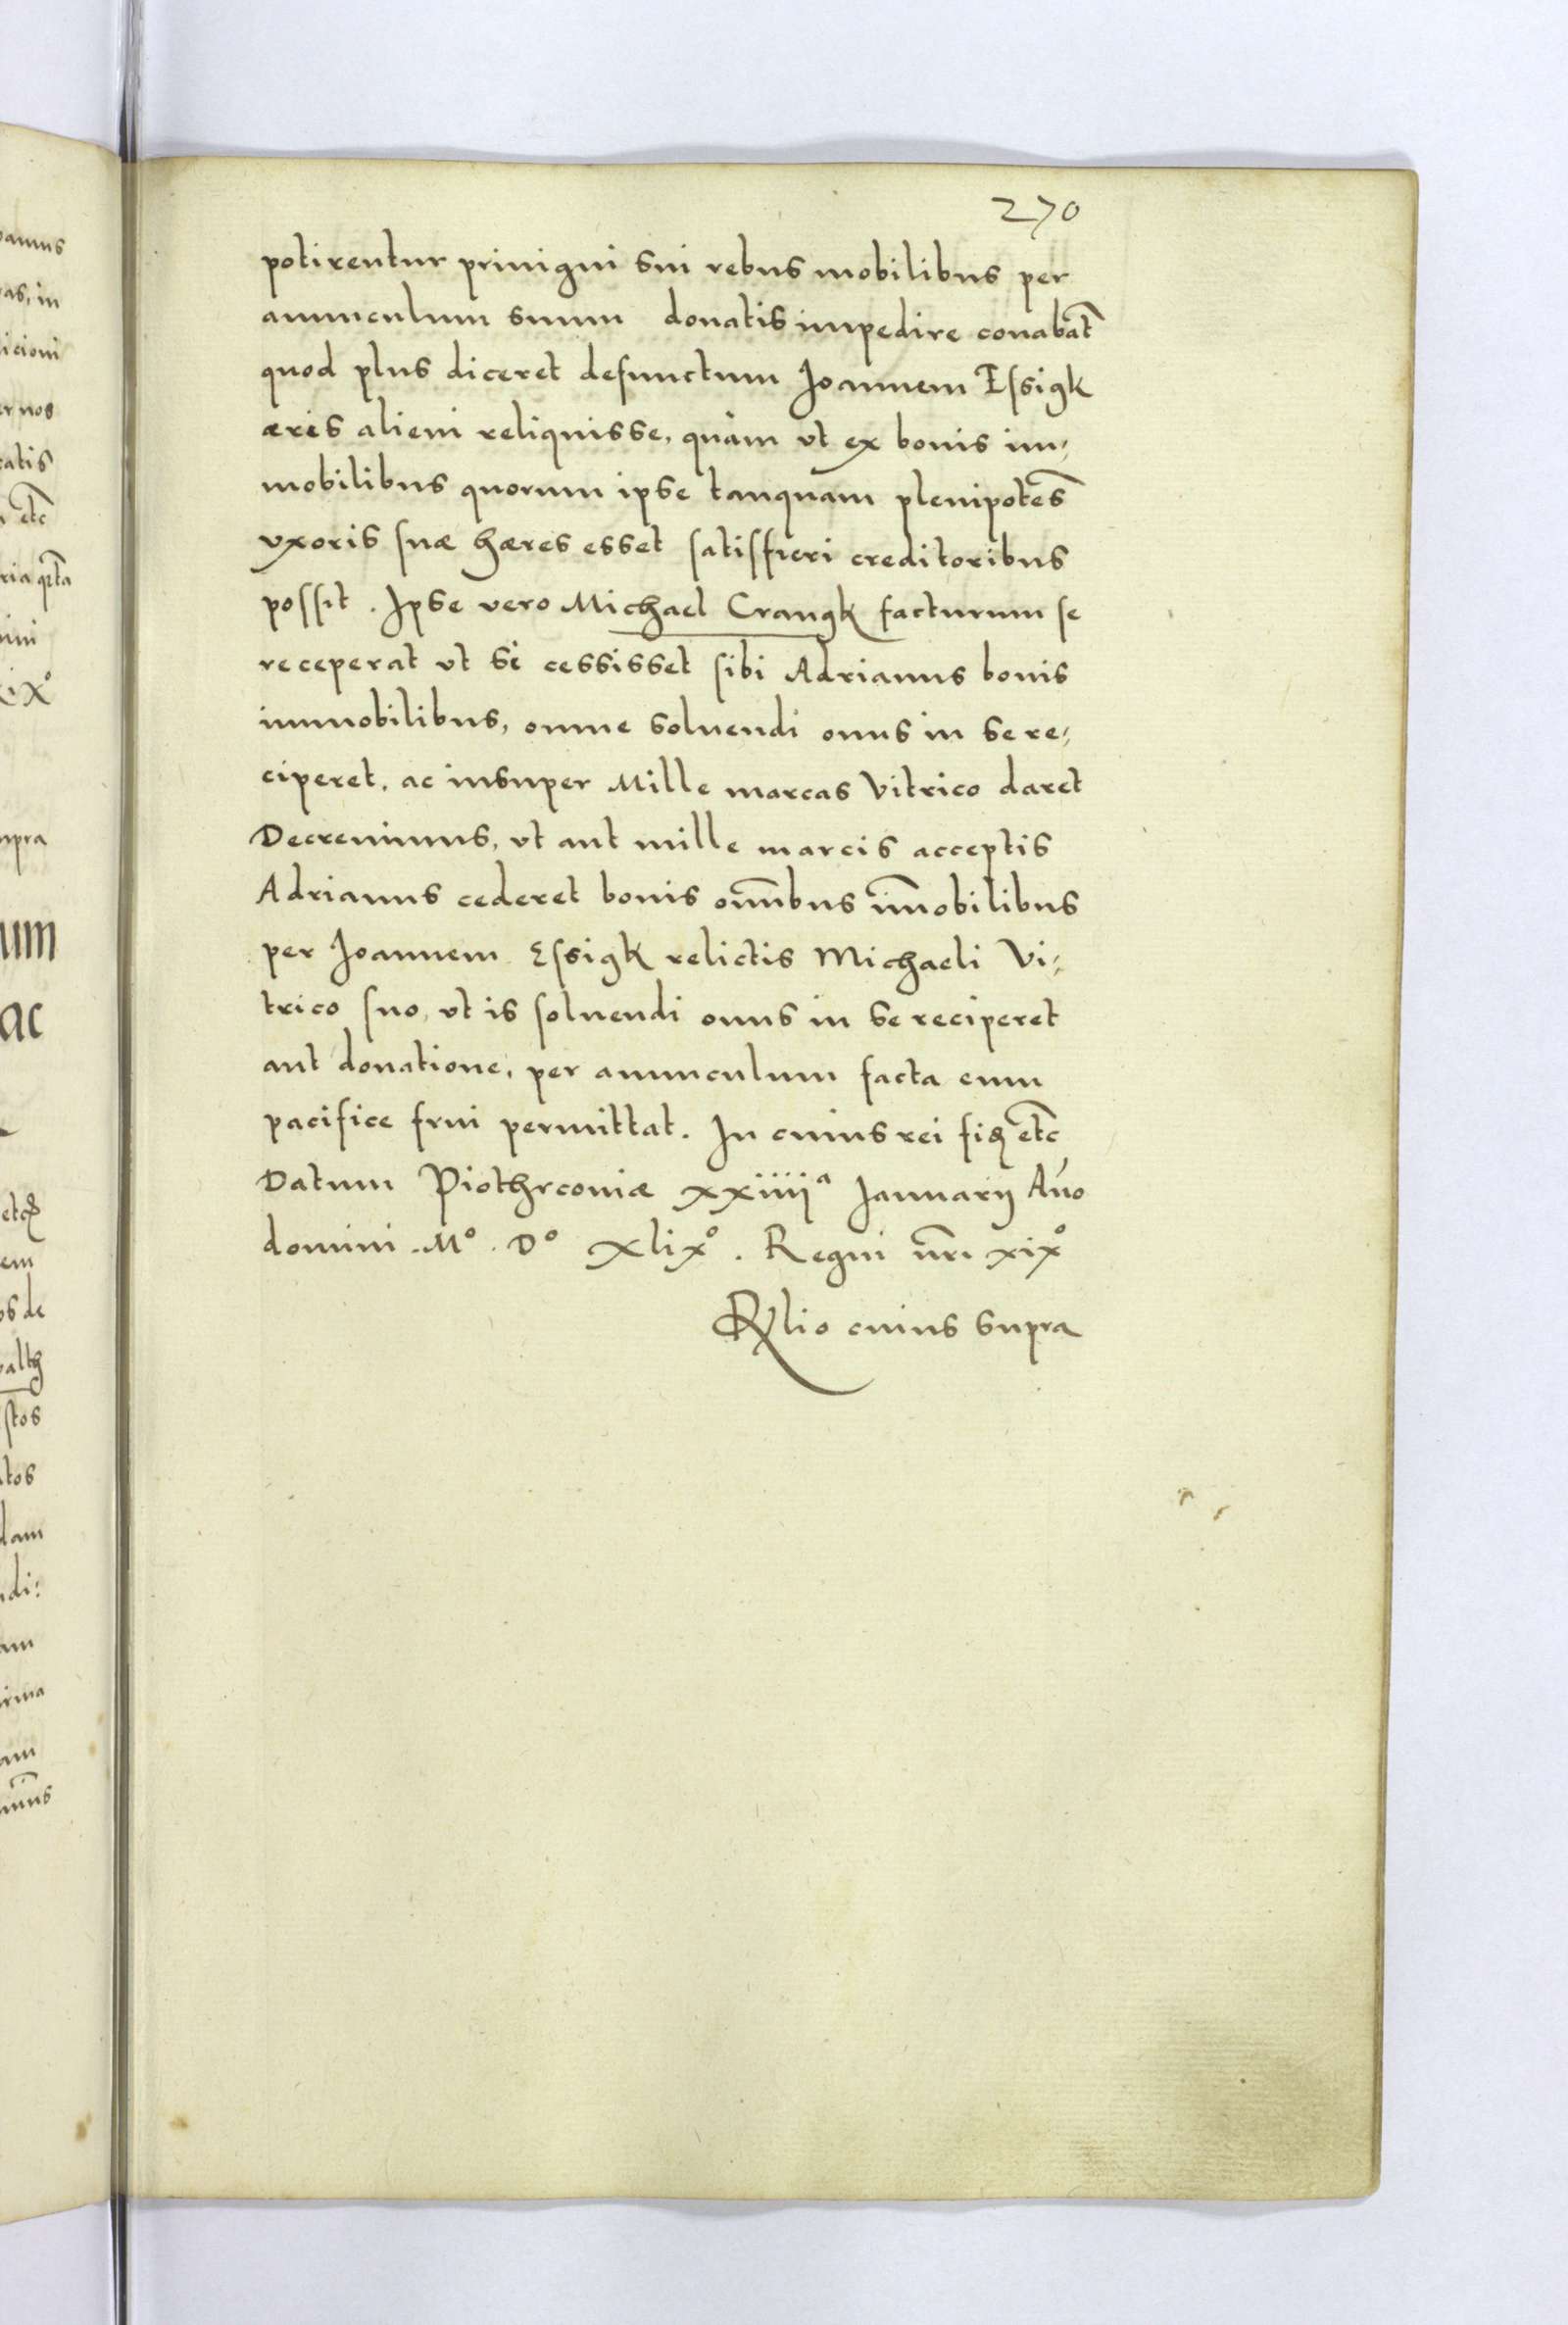 270
potirentur priuigni sui rebus mobilibus per
auunculum suum donatis impedire conabat̃
quod plus diceret defunctum Joannem Essigk
æris alieni reliquisse, quàm vt ex bonis im-
mobilibus quorum ipse tanquam plenipotẽs
vxoris suæ hæres esset satisfieri creditoribus
possit. Ipse vero Michael Crangk facturum se
receperat vt si cessisset sibi Adrianus bonis
immobilibus, omne soluendi onus in se re-
ciperet, ac insuper Mille marcas Vitrico daret
Decreuimus, vt aut mille marcis acceptis
Adrianus cederet bonis om̃ibus im̃obilibus
per Joannem Essigk relictis Michaeli Vi-
trico suo, vt is soluendi onus in se reciperet
aut donatione, per auunculum facta eum
pacifice frui permittat. In cuius rei fiꝫ etc̃
Datum Piothrconiæ xxiiiiᵃ Januarij Año
domini .Mº. Dº xlixº. Regni nr̃i xixº
Rlio cuius supra